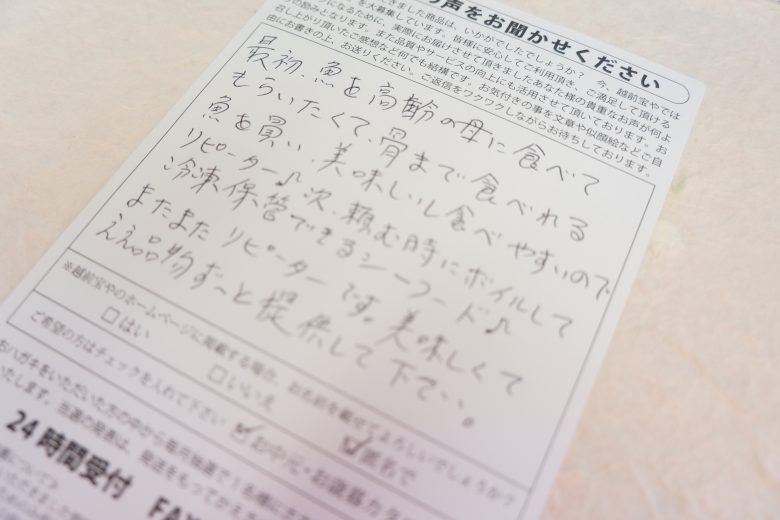 り声をお聞かせください
きました商品は、いかがでしたでしょうか？ 今、越前宝やでは
を大募集しています。皆様に安心してご利用頂き、ご満足して頂ける
になるために、実際にお届けさせて頂きましたあなた様の貴重なお声が何よ
の励みとなります。また品質やサービスの向上にも活用させて頂いております。お
召し上がり頂いたご感想など何でも結構です。お気付きの事を文章や似顔絵などご自
由にお書きの上、お送りください。ご返信をワクワクしながらお待ちしております。
最初、魚を高齢の母に食べて
もらいたくて、骨まで食べれる
魚を買い、美味しいし食べやすいので
リピーター♪次、頼む時にボイルして
冷凍保管できるシーフード♪
またまたリピーターです。美味しくて
ええ品物ずーっと提供して下さい。
※越前宝やのホームページに掲載する場合、お名前を載せてよろしいでしょうか？
□はい □いいえ ☑匿名で
ご希望の方はチェックを入れて下さい ☑お中元・お歳暮カタ
おハガキをいただいた方の中から毎月抽選で1名様にさ
いたします。当選の発表は、発送をもってかえさ
24時間受付 FAX